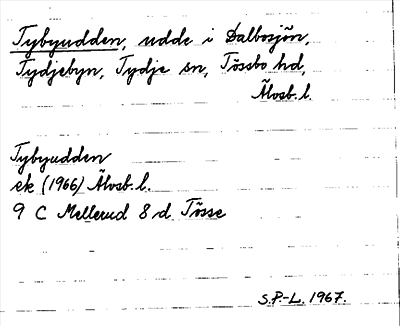 Tybyudden, udde i Dalbosjön,
Tydjebyn, Tydje sn, Tössbo hd,
Älvsb. l.
Tybyudden
ek (1966) Älvsb. l.
9 C Mellerud 8 d Tösse
S.P.-L. 1967.